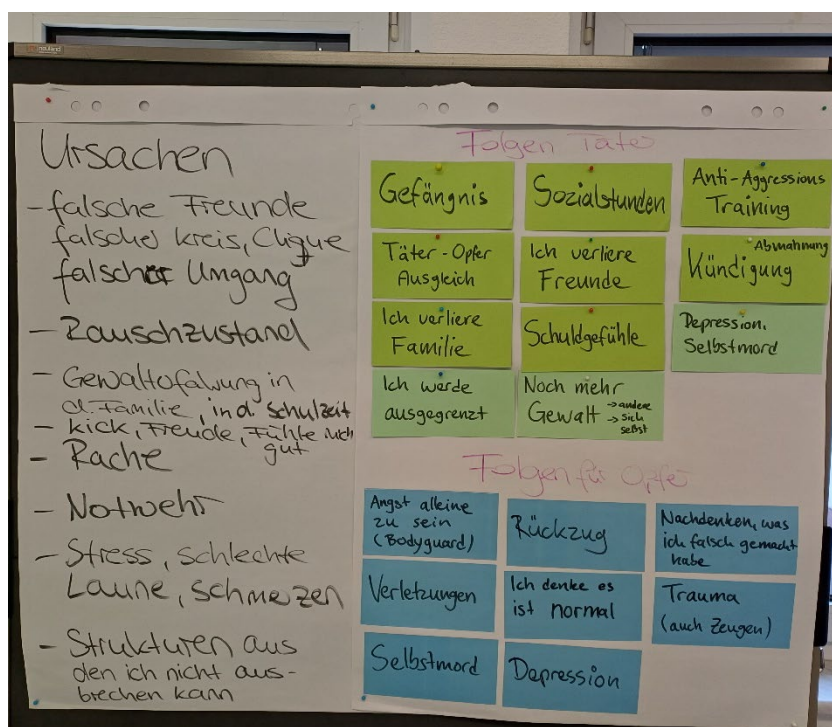 Ursachen
- falsche Freunde
falscher Kreis, Clique
falscher Umgang
- Rauschzustand
- Gewalterfahrung in
d. Familie, in d. Schulzeit
- Kick, Freude, Fühle mich
gut
- Rache
- Notwehr
- Stress, schlechte
Laune, Schmerzen
- Strukturen aus
den ich nicht aus-
brechen kann
Folgen Täter
Gefängnis
Sozialstunden
Anti-Aggressions
Training
Täter-Opfer
Ausgleich
Ich verliere
Freunde
Abmahnung
Kündigung
Ich verliere
Familie
Schuldgefühle
Depression,
Selbstmord
Ich werde
ausgegrenzt
Noch mehr
Gewalt → andere
→ sich
selbst
Folgen für Opfer
Angst alleine
zu sein
(Bodyguard)
Rückzug
Nachdenken, was
ich falsch gemacht
habe
Verletzungen
Ich denke es
ist normal
Trauma
(auch Zeugen)
Selbstmord
Depression